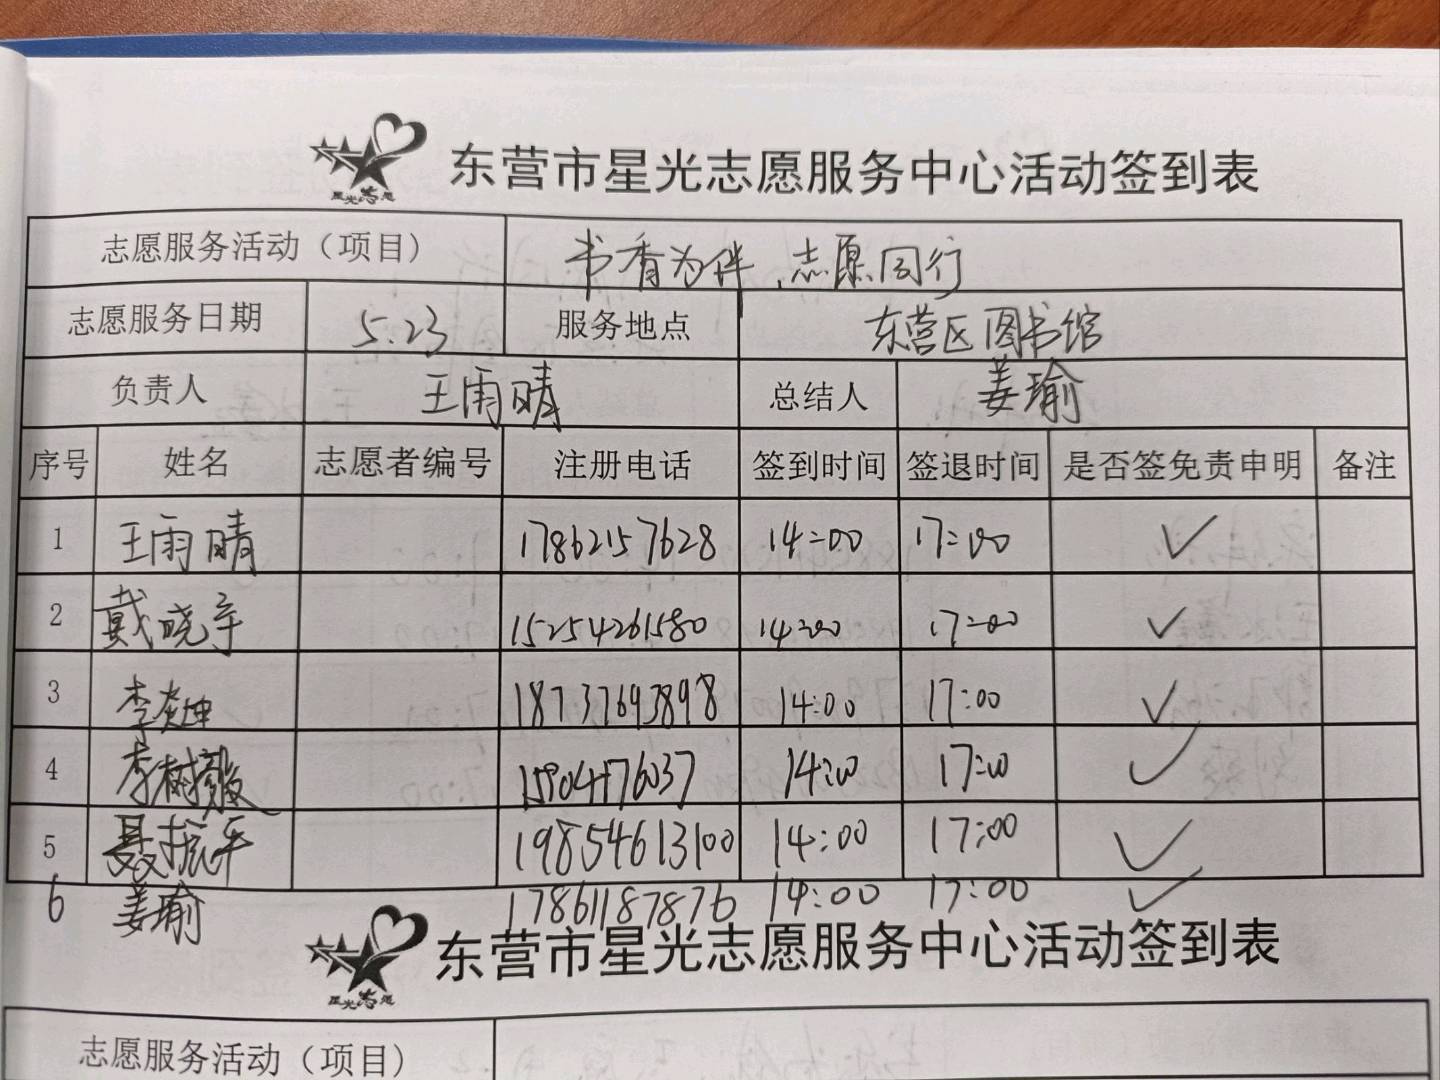 星光志愿
东营市星光志愿服务中心活动签到表
志愿服务活动（项目） 书香为伴，志愿同行
志愿服务日期 5.23 服务地点 东营区图书馆
负责人 王雨晴 总结人 姜瑜
序号 姓名 志愿者编号 注册电话 签到时间 签退时间 是否签免责申明 备注
1 王雨晴 17862157628 14:00 17:00 ✓
2 戴晓辛 15254261580 14:00 17:00 ✓
3 李 坤 18737693898 14:00 17:00 ✓
4 李树毅 15904176037 14:00 17:00 ✓
5 聂振平 19854613100 14:00 17:00 ✓
6 姜瑜 17861187876 14:00 17:00 ✓
星光志愿
东营市星光志愿服务中心活动签到表
志愿服务活动（项目）